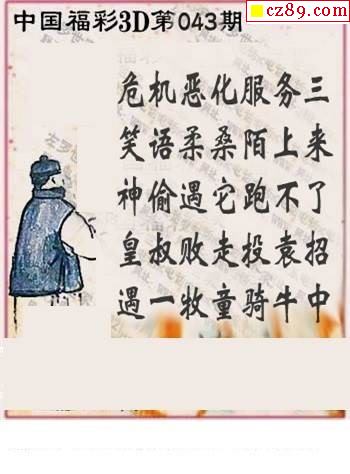 cz89.com
中国福彩3D第043期
危机恶化服务三
笑语柔桑陌上来
神偷遇它跑不了
皇叔败走投袁招
遇一牧童骑牛中